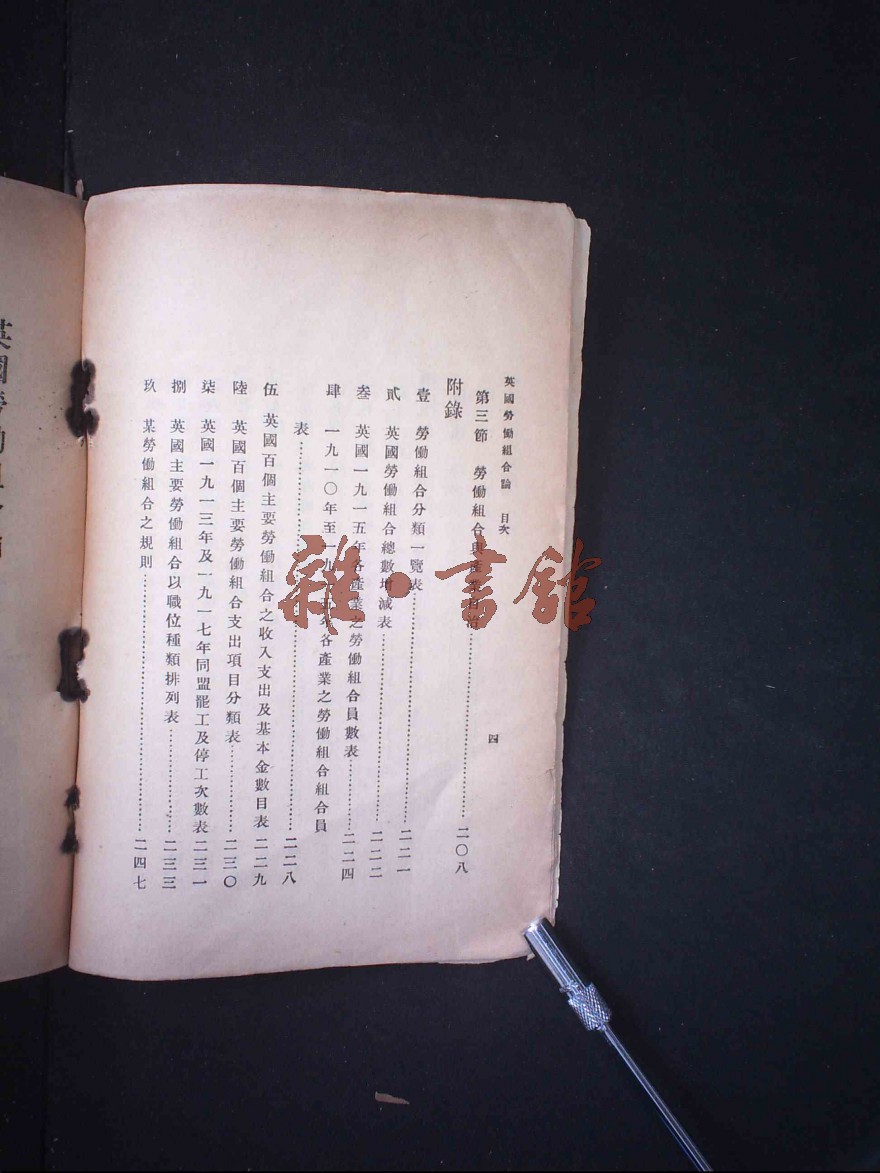 英國勞働組合論 目次 四
第三節 勞働組合與產業自治……二〇八
附錄
壹 勞働組合分類一覽表……二二一
貳 英國勞働組合總數增減表……二二二
叁 英國一九一五年各產業之勞働組合員數表……二二四
肆 一九一〇年至一九一五年各產業之勞働組合組合員
表……二二八
伍 英國百個主要勞働組合之收入支出及基本金數目表 二二九
陸 英國百個主要勞働組合支出項目分類表……二三〇
柒 英國一九一三年及一九一七年同盟罷工及停工次數表 二三一
捌 英國主要勞働組合以職位種類排列表……二三三
玖 某勞働組合之規則……二四七
雜·書館